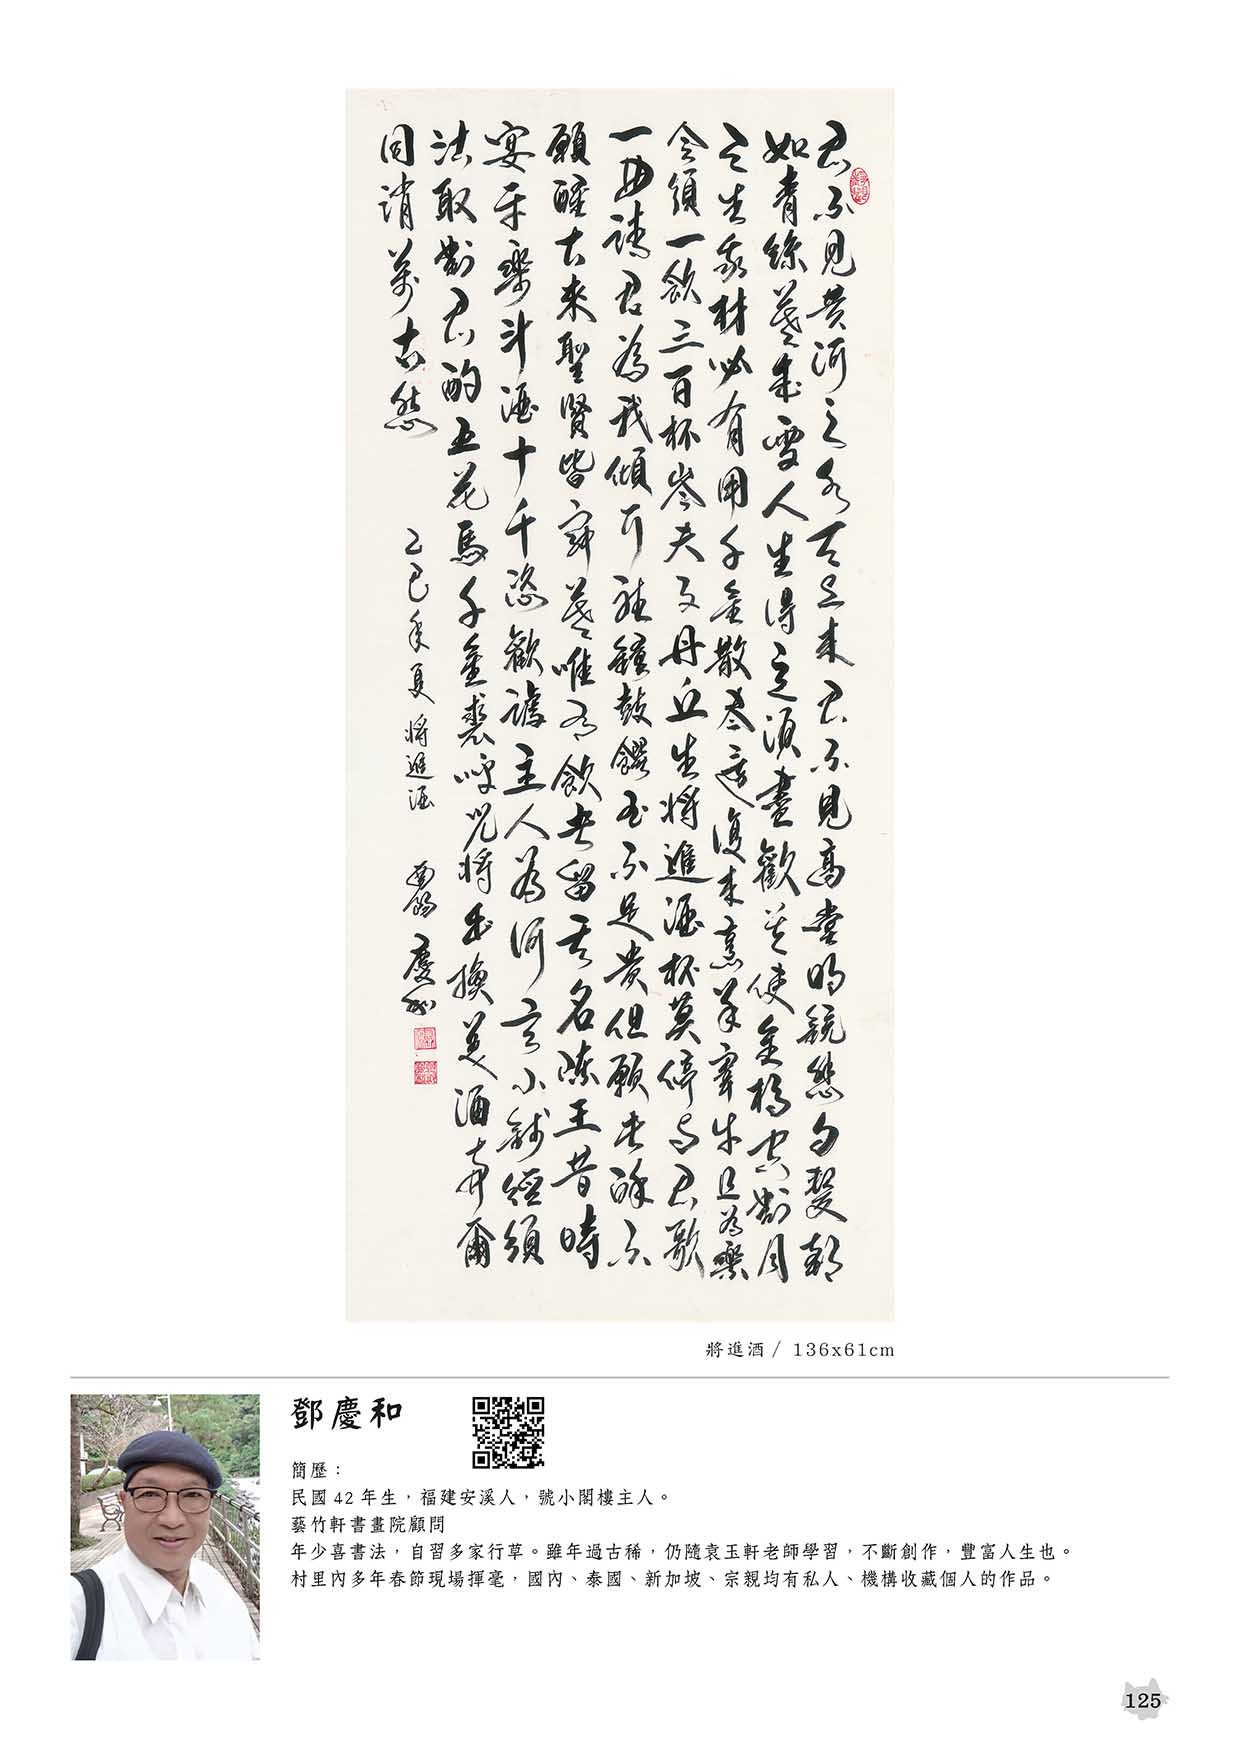 君不見黃河之水天上來君不見高堂明鏡悲白髮朝
如青絲暮成雪人生得意須盡歡莫使金樽空對月
天生我材必有用千金散盡還復來烹羊宰牛且為樂
會須一飲三百杯岑夫子丹丘生將進酒杯莫停與君歌
一曲請君為我傾耳聽鐘鼓饌玉不足貴但願長醉不
願醒古來聖賢皆寂寞唯有飲者留其名陳王昔時
宴平樂斗酒十千恣歡謔主人為何言少錢徑須
沽取對君酌五花馬千金裘呼兒將出換美酒與爾
同消萬古愁
乙巳年夏 將進酒 慶和
將進酒 / 136x61cm
鄧慶和
簡歷：
民國 42 年生，福建安溪人，號小閣樓主人。
藝竹軒書畫院顧問
年少喜書法，自習多家行草。雖年過古稀，仍隨袁玉軒老師學習，不斷創作，豐富人生也。
村里內多年春節現場揮毫，國內、泰國、新加坡、宗親均有私人、機構收藏個人的作品。
125